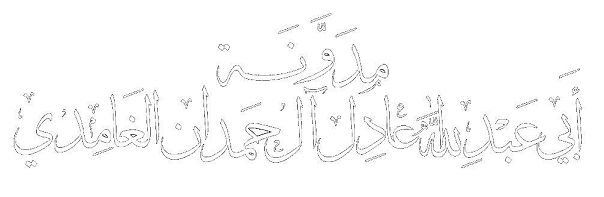 مُدَوَّنَة
أَبِي عَبْدِ اللَّهِ عَادِل آل حَمْدَان الغَامِدِي